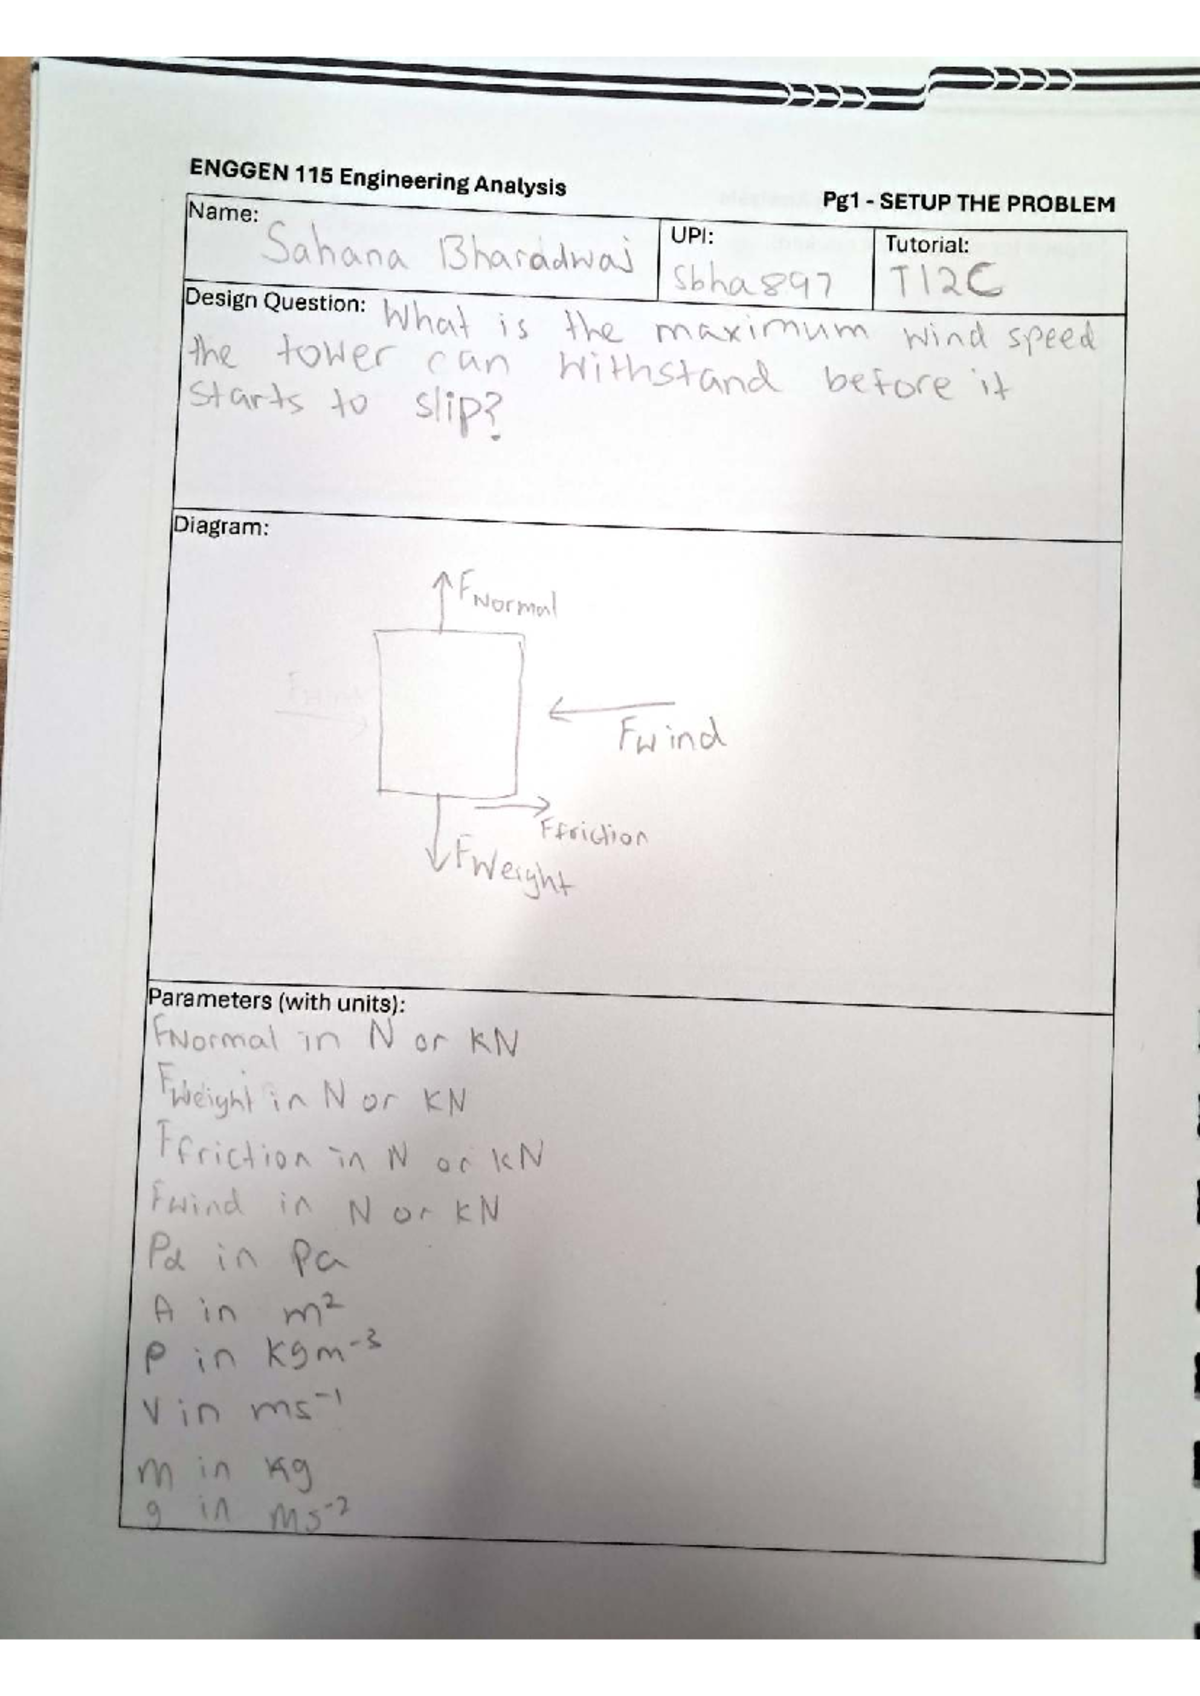 ENGGEN 115 Engineering Analysis
Pg1 - SETUP THE PROBLEM
Name: Sahana Bharadwaj
UPI: Sbha897
Tutorial: T12C
Design Question: What is the maximum wind speed
the tower can withstand before it
starts to slip?
Diagram:
FNormal
Fwind
Ffriction
FWeight
Parameters (with units):
FNormal in N or KN
FWeight in N or KN
Ffriction in N or kN
Fwind in N or KN
Pd in Pa
A in m²
ρ in Kgm⁻³
V in ms⁻¹
m in Kg
g in ms⁻²